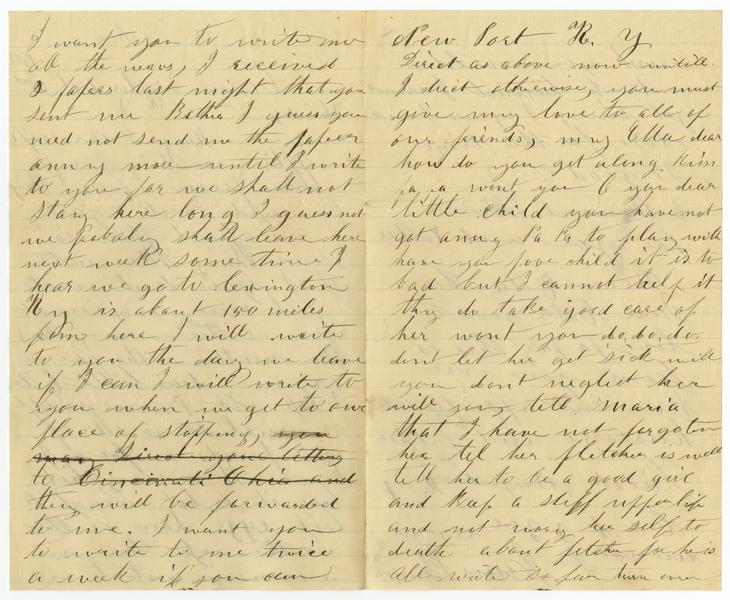 I want you to write me
all the news, I received
2 papers last night that you
sent me Bethia I guess you
need not send me the papers
anny more until I write
to you for we shall not
stay here long I guess not
we probaly shall leave here
next week some time I
hear we go to lexington
Ky is about 150 miles
from here I will write
to you the day we leave
if I can I will write to
you when we get to our
place of stopping, you
may Direct your letters
to Cincinati Ohio and
they will be forwarded
to me. I want you
to write to me twice
a week if you can
New Port K. Y
Direct as above now untill
I direct otherwise, you must
give my love to all of
our friends, my Ella dear
how do you get along kiss
pa pa wont you O you dear
little child you have not
got anny Pa Pa to play with
have you poor child it is to
bad but I cannot help it
they do take good care of
her wont you do, do, do,
dont let her get sick will
you dont neglect her
will you tell Maria
that I have not forgoten
her tel her fletcher is well
tell her to be a good girl
and keep a stiff upper lip
and not worry her self to
death about fletcher for he is
all wrte so far turn over